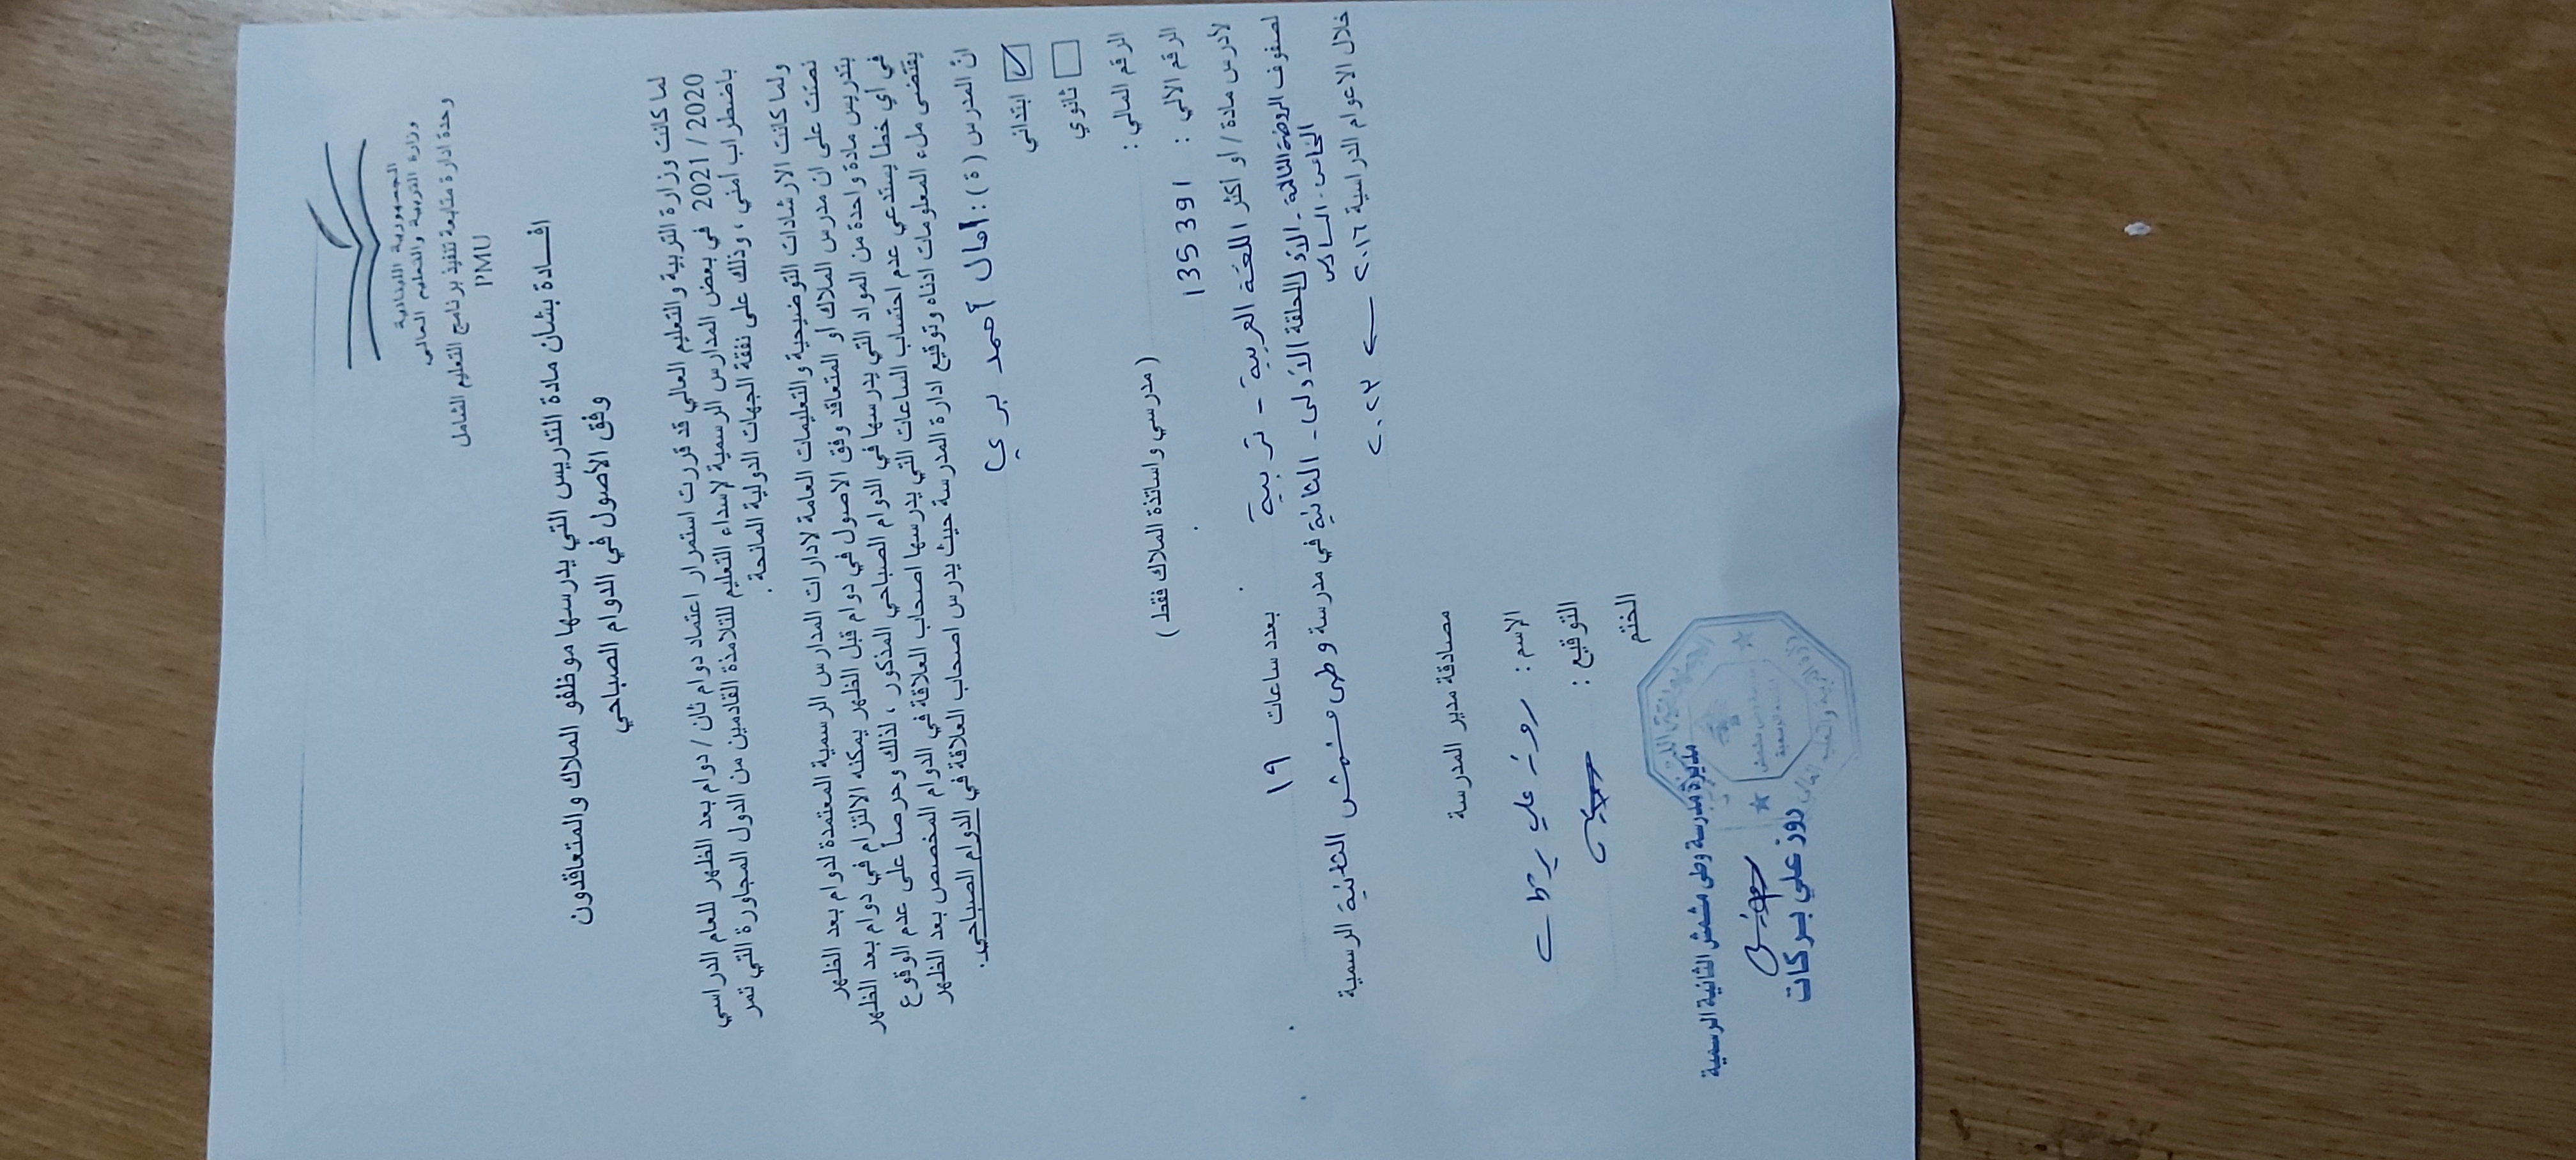 الجمهورية اللبنانية
وزارة التربية والتعليم العالي
وحدة ادارة متابعة تنفيذ برنامج التعليم الشامل
PMU
افـــادة بشان مادة التدريس التي يدرسها موظفو الملاك والمتعاقدون
وفق الأصول في الدوام الصباحي
لما كانت وزارة التربية والتعليم العالي قد قررت استمرار اعتماد دوام ثان / دوام بعد الظهر للعام الدراسي
2020 / 2021 في بعض المدارس الرسمية لإسداء التعليم للتلامذة القادمين من الدول المجاورة التي تمر
باضطراب أمني ، وذلك على نفقة الجهات الدولية المانحة.
ولما كانت الارشادات التوضيحية والتعليمات العامة لادارات المدارس الرسمية المعتمدة لدوام بعد الظهر
نصت على ان مدرس الملاك أو المتعاقد وفق الاصول في دوام قبل الظهر يمكنه الالتزام في دوام بعد الظهر
بتدريس مادة واحدة من المواد التي يدرسها في الدوام الصباحي المذكور ، لذلك وحرصاً على عدم الوقوع
في أي خطا يستدعي عدم احتساب الساعات التي يدرسها اصحاب العلاقة في الدوام المخصص بعد الظهر
يقتضى ملء المعلومات ادناه وتوقيع ادارة المدرسة حيث يدرس اصحاب العلاقة في الدوام الصباحي.
انّ المدرس ( ة ) : آمال أحمد بري
ابتدائي
ثانوي
الرقم المالي : ( مدرسي واساتذة الملاك فقط )
الرقم الآلي : 135391
لأدرس مادة / او أكثر اللغة العربية - تربية بعدد ساعات ١٩
لصفوف الروضة الثالثة - الأول الحلقة الأولى - الثانية في مدرسة وطى مشمش الثانية الرسمية
الخامس - السادس
خلال الاعوام الدراسية ٢٠١٦ ← ٢٠٢٣
مصادقة مدير المدرسة
الإسم : روز علي بركات
التوقيع :
الختم
مديرة مدرسة وطى مشمش الثانية الرسمية
روز علي بركات